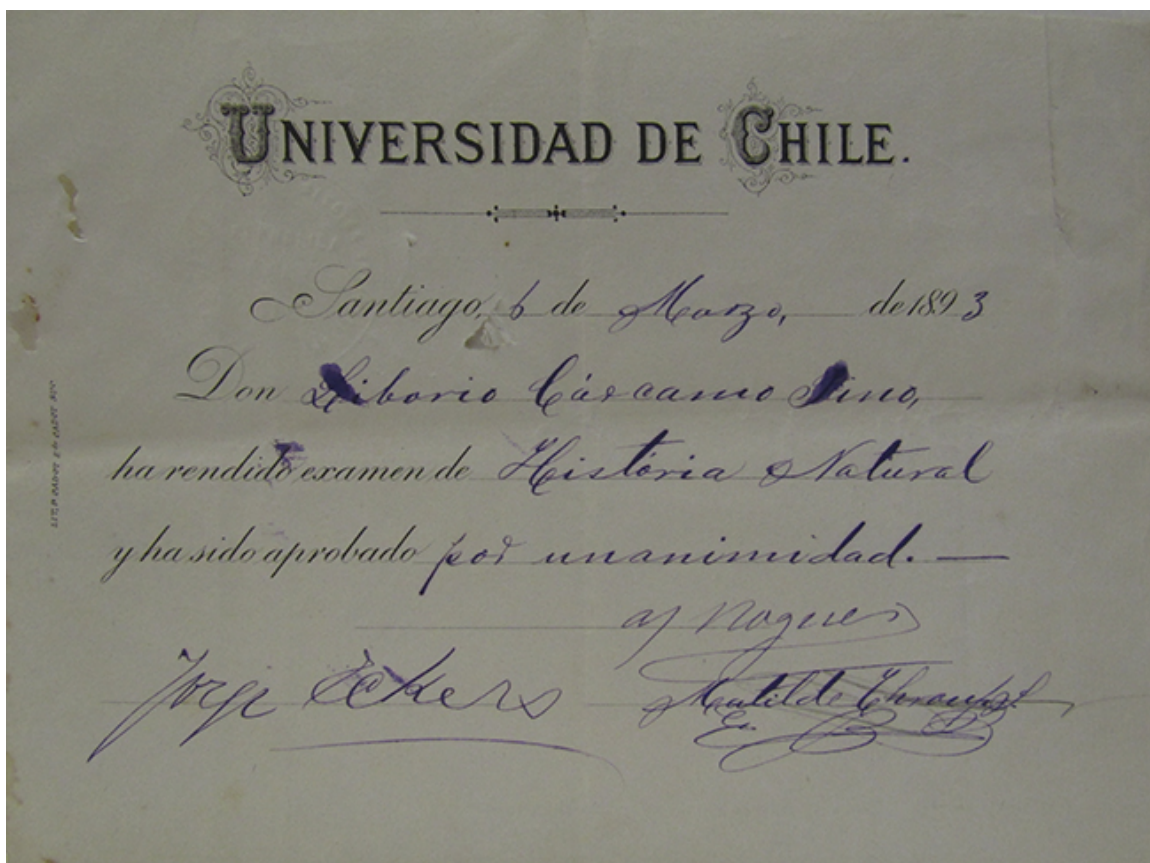 UNIVERSIDAD DE CHILE.
Santiago, 6 de Marzo, de 1893
Don Liborio Cárcamo Pino,
ha rendido examen de História Natural
y ha sido aprobado por unanimidad.—
Nogues
Jorge Eckers
Matilde Throup